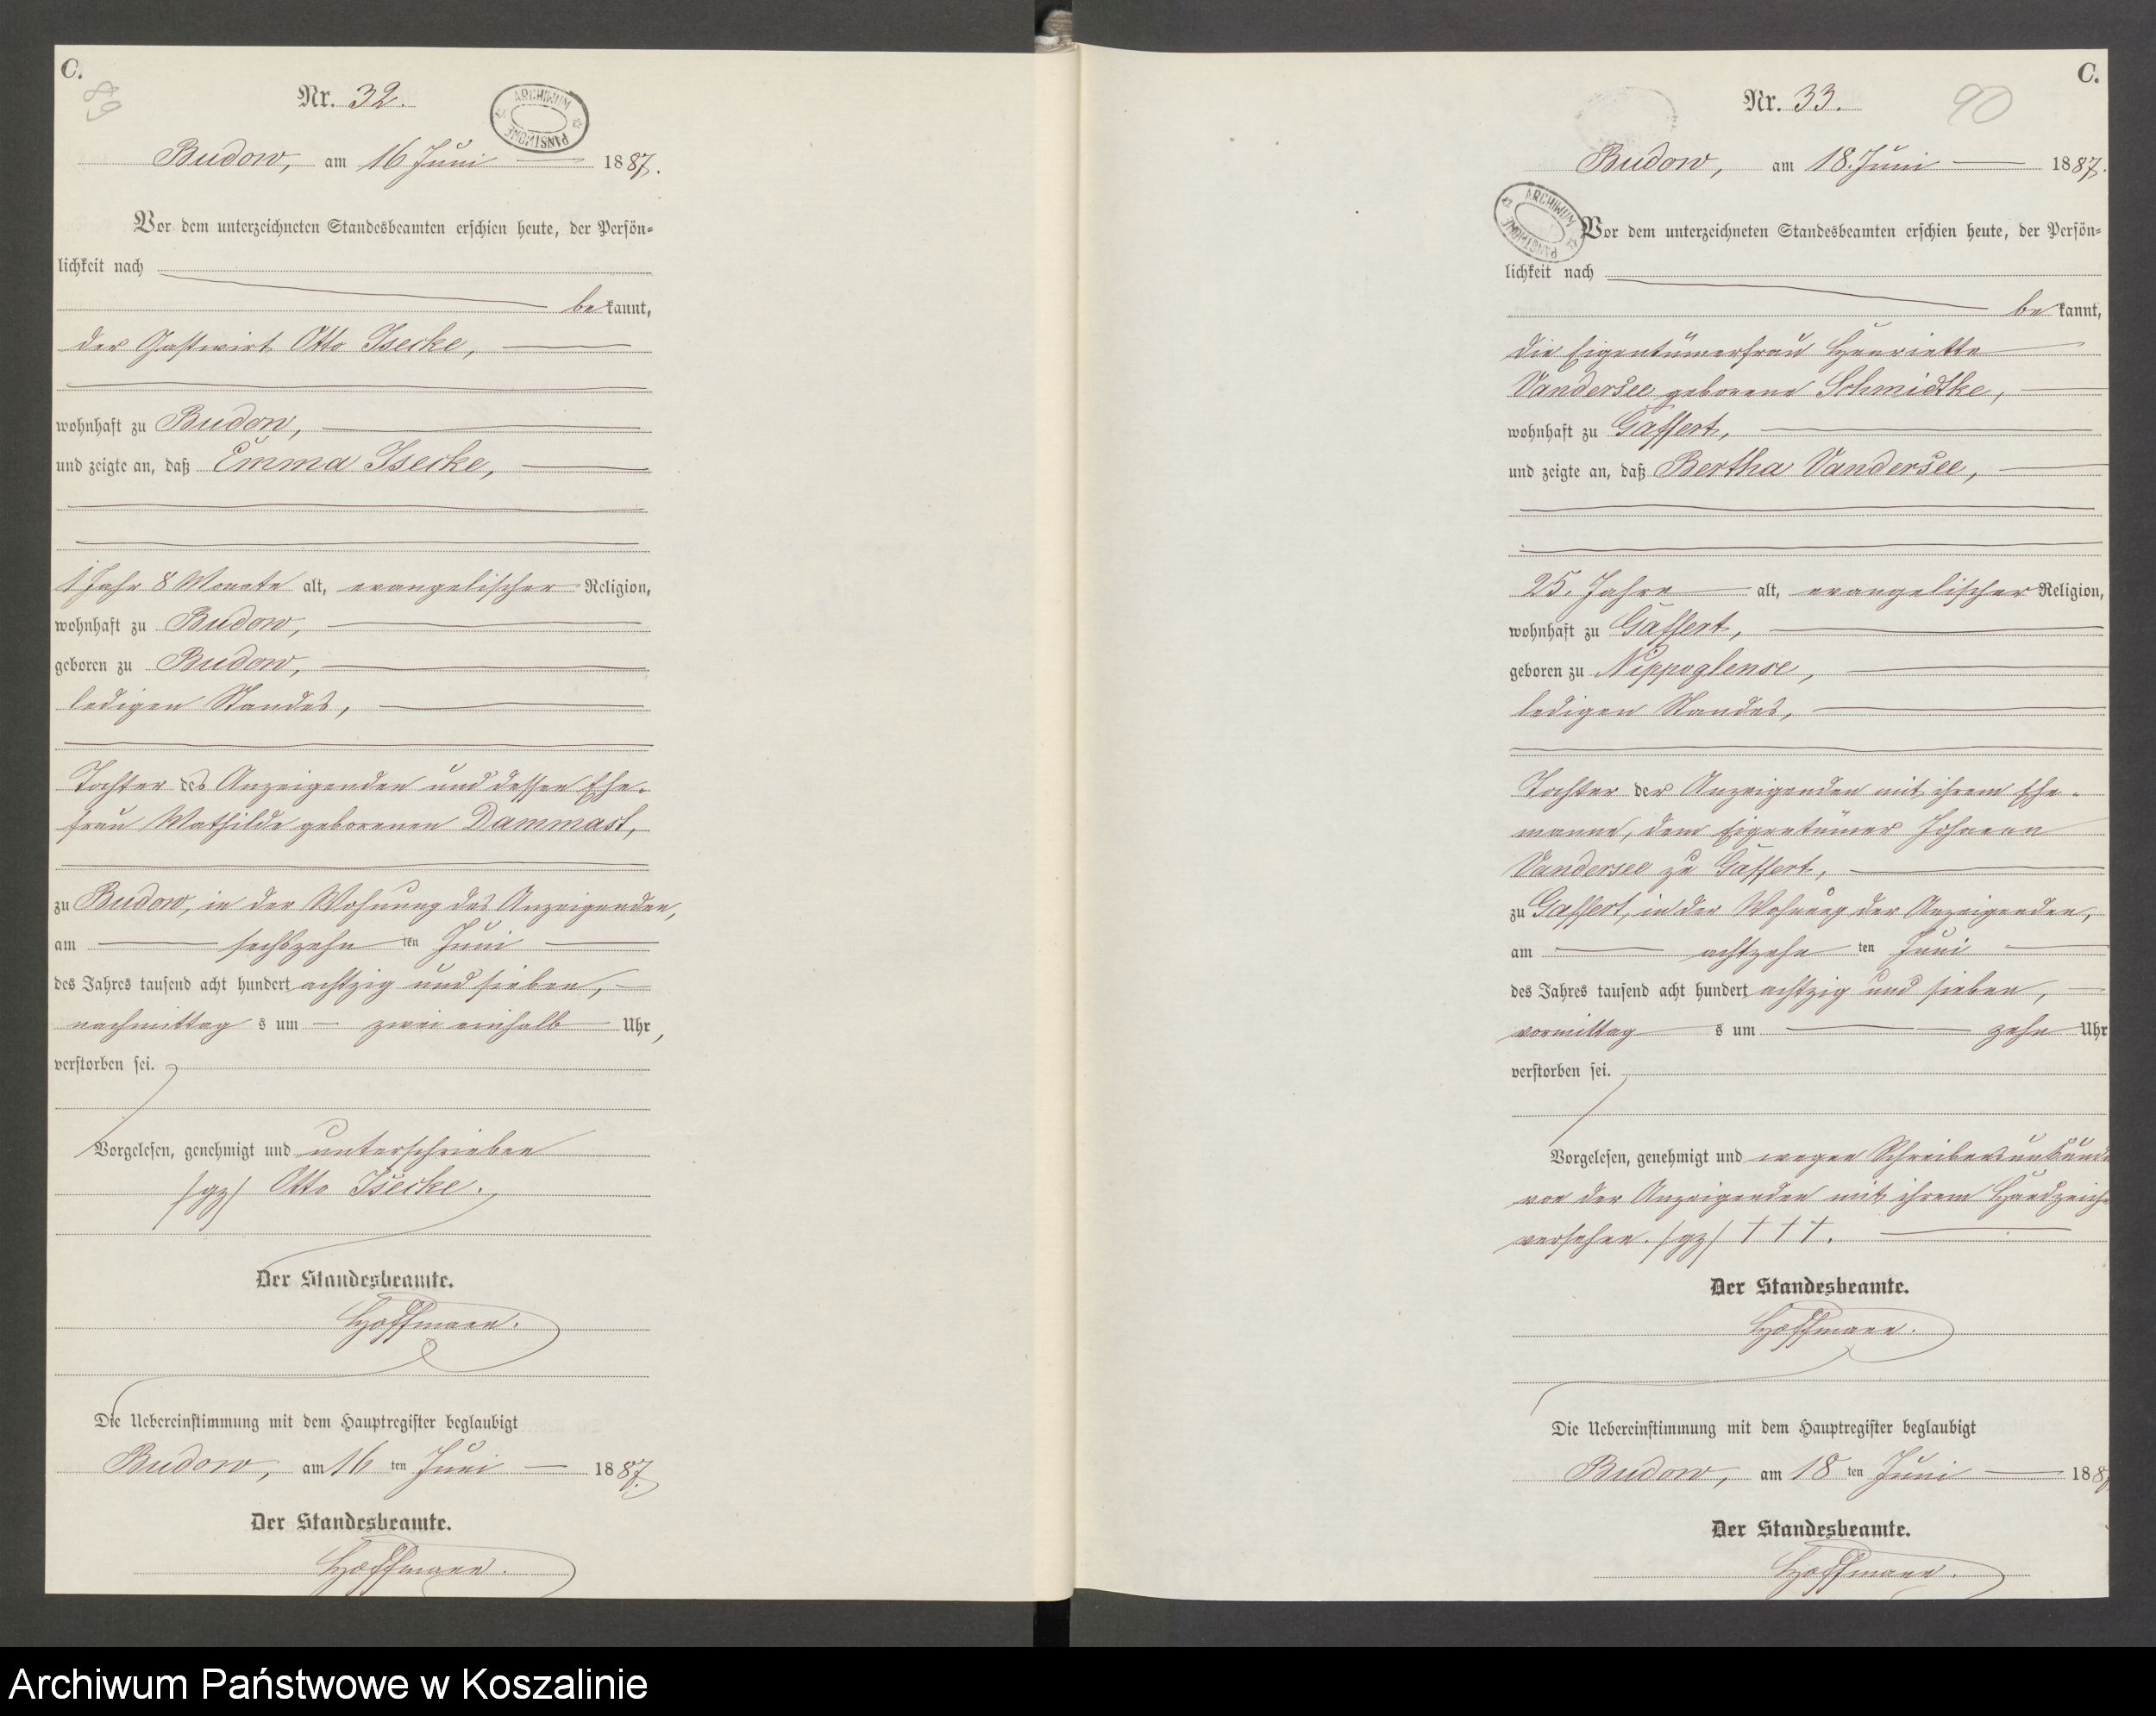 C.
89
Nr. 32.
ARCHIWUM PAŃSTWOWE
Budow, am 16 Juni 1887.
Vor dem unterzeichneten Standesbeamten erschien heute, der Persön=
lichkeit nach
be kannt,
der Gastwirt Otto Isecke,
wohnhaft zu Budow,
und zeigte an, daß Emma Isecke,
1 Jahr 8 Monate alt, evangelischer Religion,
wohnhaft zu Budow,
geboren zu Budow,
ledigen Standes,
Tochter des Anzeigenden und dessen Ehe-
frau Mathilde geborenen Dammast,
zu Budow, in der Wohnung des Anzeigenden,
am sechszehn ten Juni
des Jahres tausend acht hundert achtzig und sieben,
nachmittag s um zwei einhalb Uhr,
verstorben sei.
Vorgelesen, genehmigt und unterschrieben
/gz/ Otto Isecke.
Der Standesbeamte.
Hoffmann.
Die Uebereinstimmung mit dem Hauptregister beglaubigt
Budow, am 16 ten Juni 1887.
Der Standesbeamte.
Hoffmann.
C.
90
Nr. 33.
Budow, am 18. Juni 1887.
ARCHIWUM PAŃSTWOWE
Vor dem unterzeichneten Standesbeamten erschien heute, der Persön=
lichkeit nach
be kannt,
die Eigentümerfrau Henriette
Vandersee geborene Schmidtke,
wohnhaft zu Gaffert,
und zeigte an, daß Bertha Vandersee,
25. Jahre alt, evangelischer Religion,
wohnhaft zu Gaffert,
geboren zu Nippoglense,
ledigen Standes,
Tochter der Anzeigenden mit ihrem Ehe-
manne, dem Eigentümer Johann
Vandersee zu Gaffert,
zu Gaffert, in der Wohnung der Anzeigenden,
am achtzehn ten Juni
des Jahres tausend acht hundert achtzig und sieben,
vormittag s um zehn Uhr
verstorben sei.
Vorgelesen, genehmigt und wegen Schreibensunkunde
von der Anzeigenden mit ihrem Handzeichen
versehen. /gz/ † † †.
Der Standesbeamte.
Hoffmann.
Die Uebereinstimmung mit dem Hauptregister beglaubigt
Budow, am 18 ten Juni 1887
Der Standesbeamte.
Hoffmann.
Archiwum Państwowe w Koszalinie